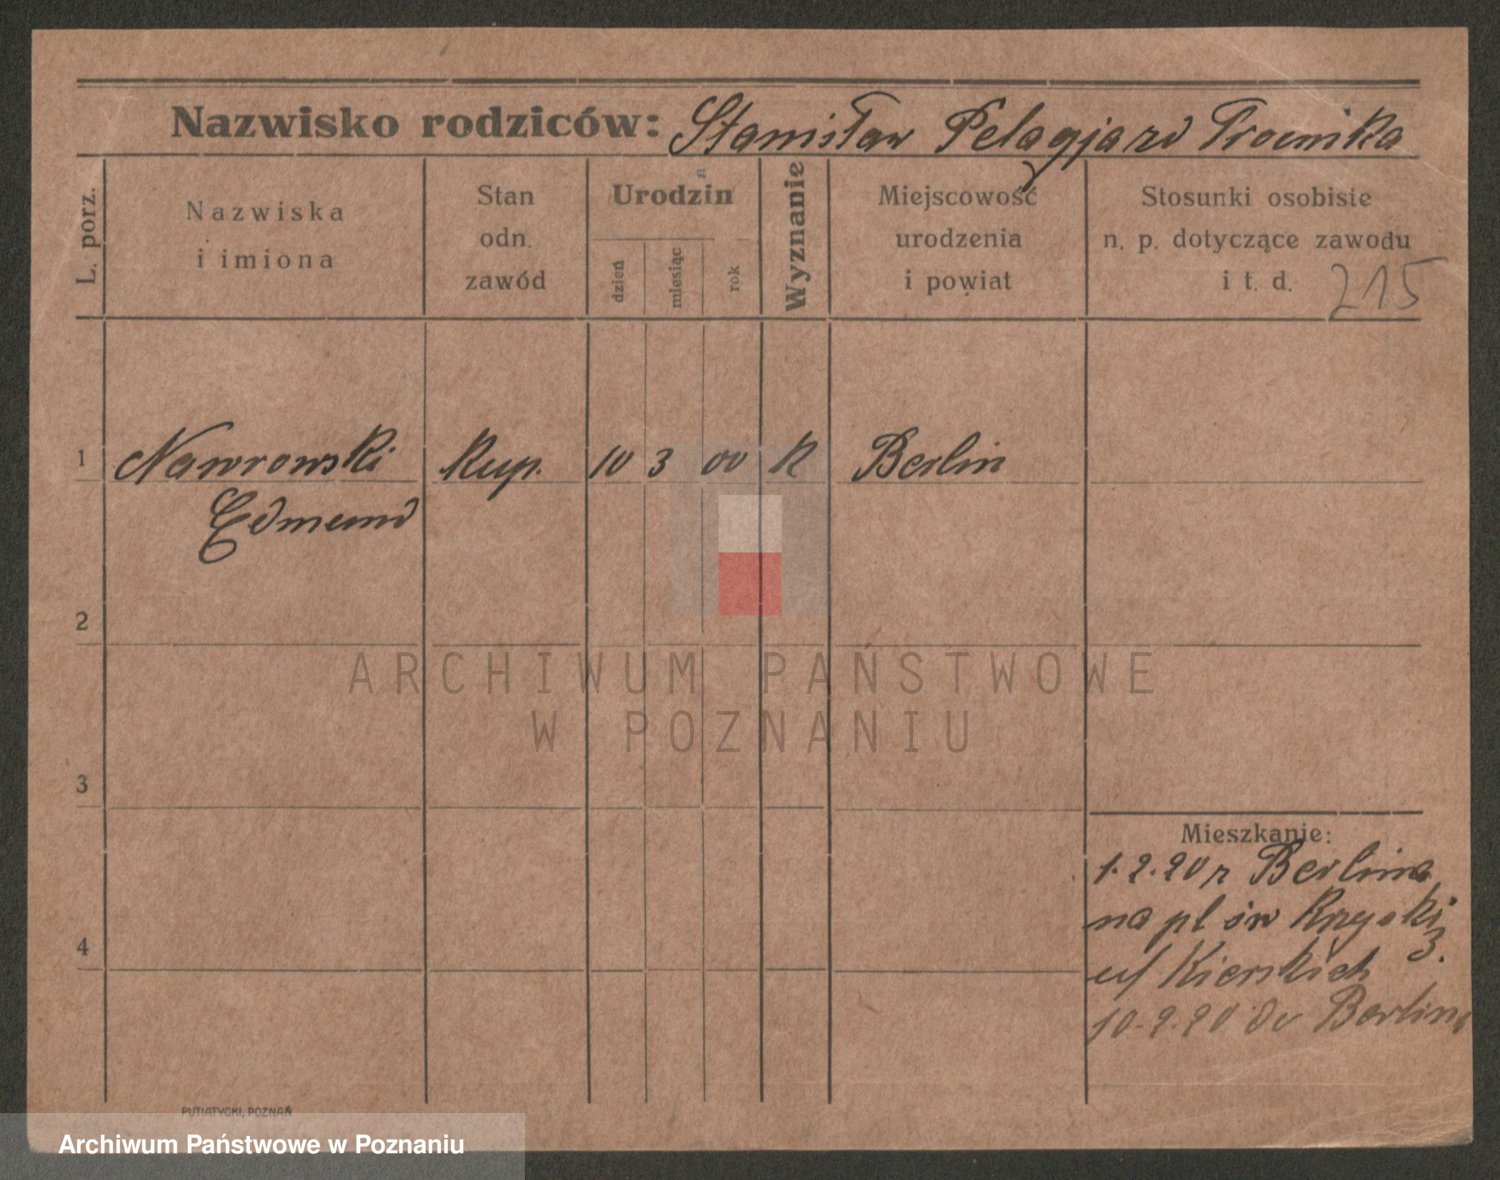 Nazwisko rodziców: Stanisław Pelagja
L. porz.
Nazwiska i imiona
Stan odn. zawód
Urodzin
dzień
miesiąc
rok
Wyznanie
Miejscowość urodzenia i powiat
Stosunki osobiste
n. p. dotyczące zawodu
i t. d. 215
1 Nawrowski Kup. 10 3 00 K Berlin
Edmund
2
3
4
Mieszkanie:
1.9.20 z Berlina
na pl św Krzyski 3.
u/ Kierskich
10.9.20 do Berlina
ARCHIWUM PAŃSTWOWE
W POZNANIU
PUTIATYCKI, POZNAŃ
Archiwum Państwowe w Poznaniu